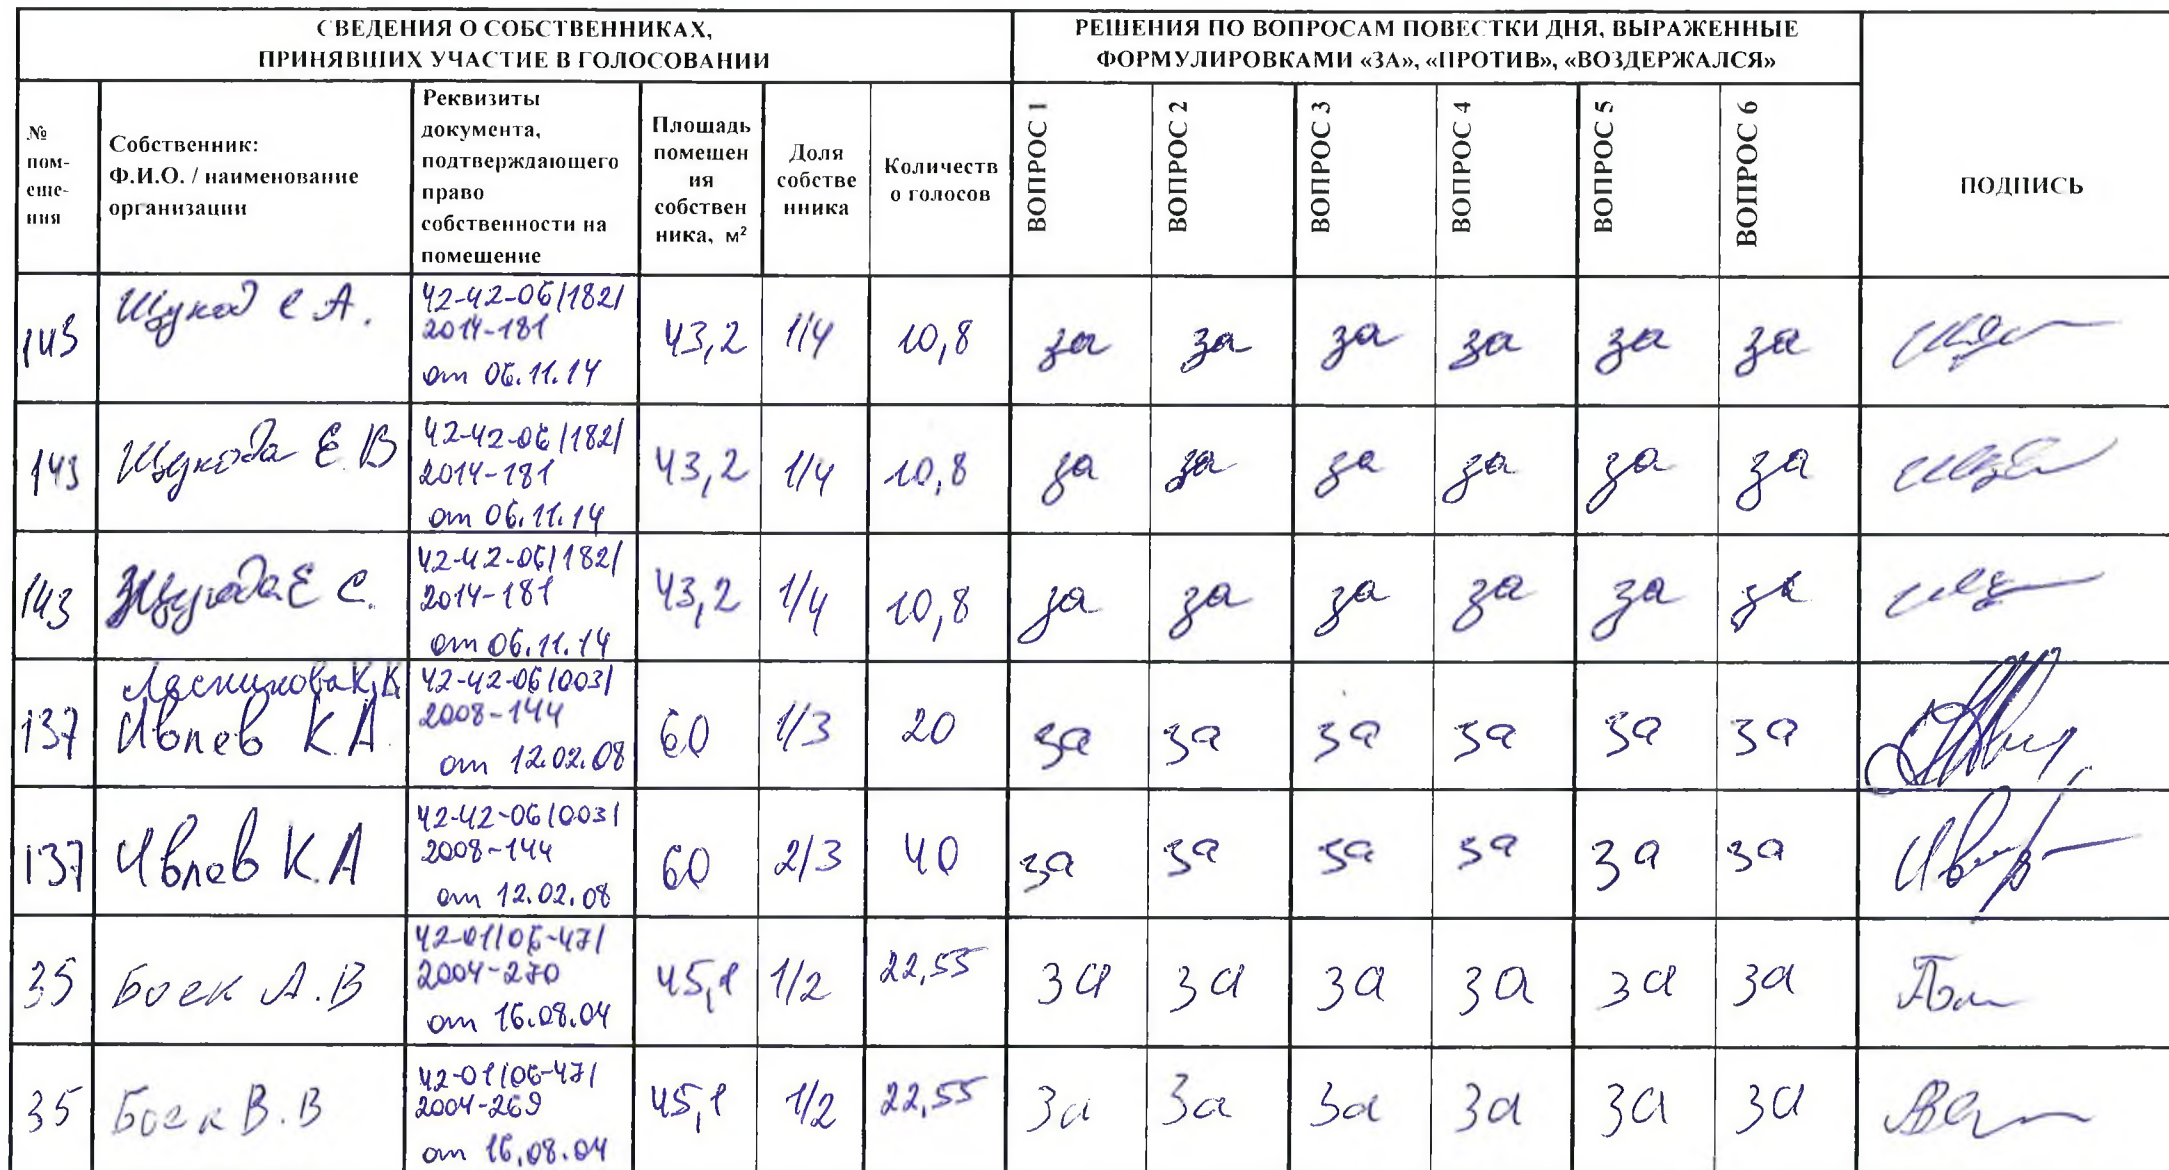 СВЕДЕНИЯ О СОБСТВЕННИКАХ,
ПРИНЯВШИХ УЧАСТИЕ В ГОЛОСОВАНИИ
РЕШЕНИЯ ПО ВОПРОСАМ ПОВЕСТКИ ДНЯ, ВЫРАЖЕННЫЕ
ФОРМУЛИРОВКАМИ «ЗА», «ПРОТИВ», «ВОЗДЕРЖАЛСЯ»
№
пом-
еще-
ния
Собственник:
Ф.И.О. / наименование
организации
Реквизиты
документа,
подтверждающего
право
собственности на
помещение
Площадь
помещен
ия
собствен
ника, м²
Доля
собстве
нника
Количеств
о голосов
ВОПРОС 1
ВОПРОС 2
ВОПРОС 3
ВОПРОС 4
ВОПРОС 5
ВОПРОС 6
ПОДПИСЬ
143 Щуков С А. 42-42-06/182/
2014-181
от 06.11.14
43,2 1/4 10,8 за за за за за за
143 Щукова Е.В 42-42-06/182/
2014-181
от 06.11.14
43,2 1/4 10,8 за за за за за за
143 Щукова Е С. 42-42-06/182/
2014-181
от 06.11.14
43,2 1/4 10,8 за за за за за за
К.К.
137 Ивлев К А. 42-42-06/003/
2008-144
от 12.02.08
60 1/3 20 за за за за за за
137 Ивлев К.А 42-42-06/003/
2008-144
от 12.02.08
60 2/3 40 за за за за за за
35 Боек А.В 42-01/06-47/
2004-270
от 16.08.04
45,1 1/2 22,55 за за за за за за
35 Боек В.В 42-01/06-47/
2004-269
от 16.08.04
45,1 1/2 22,55 За За За За За За